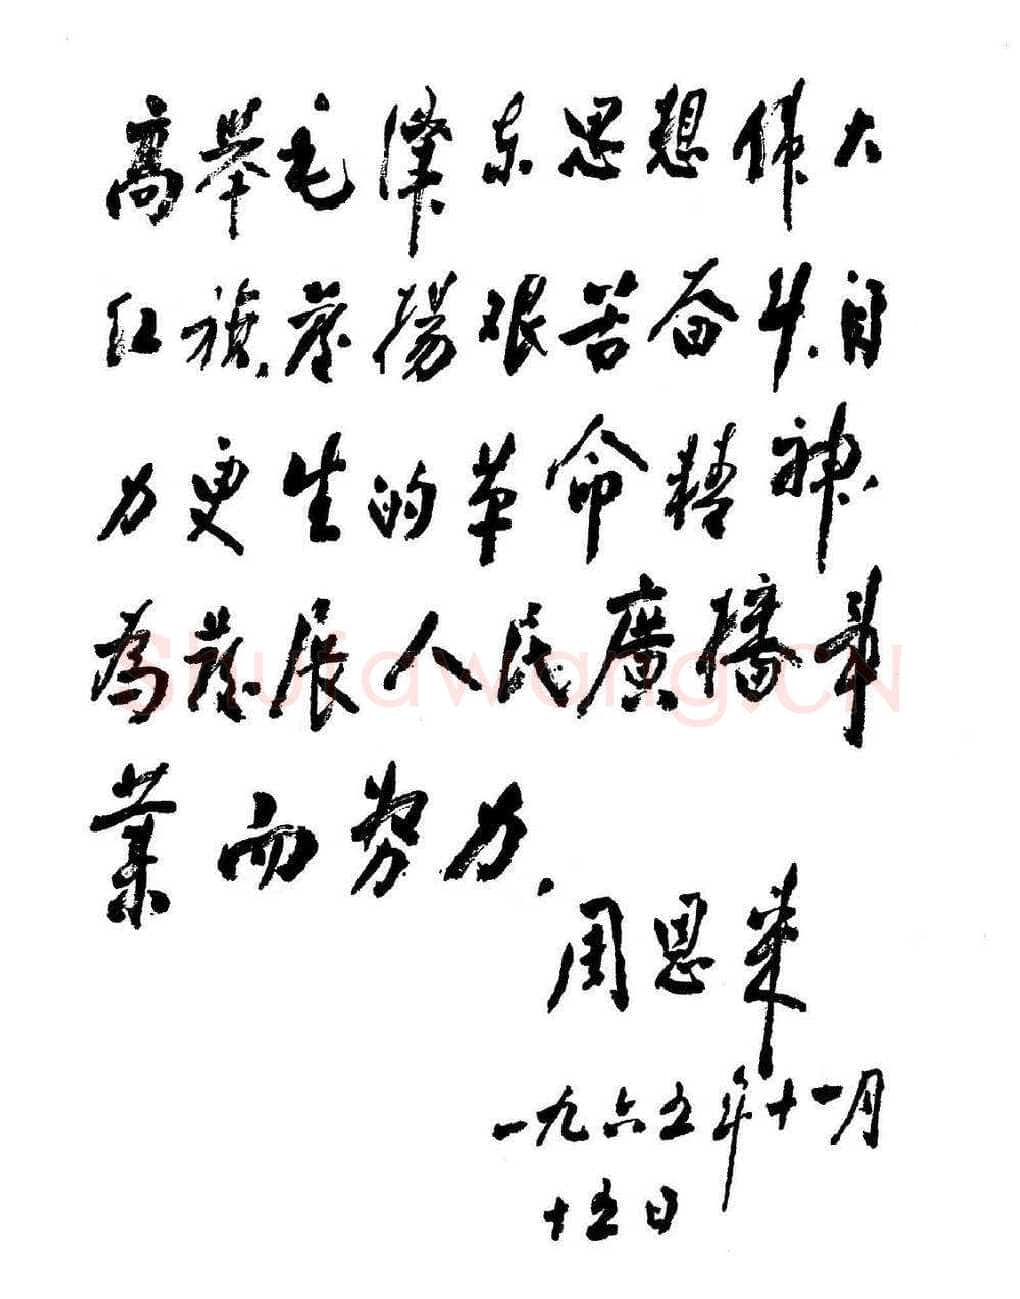 高举毛澤东思想伟大
红旗,蒸揚艰苦奋斗.自
力更生的革命精神.
為發展人民廣播事
業而努力.
周恩来
一九六五年十一月
十五日
Shufawang.CN